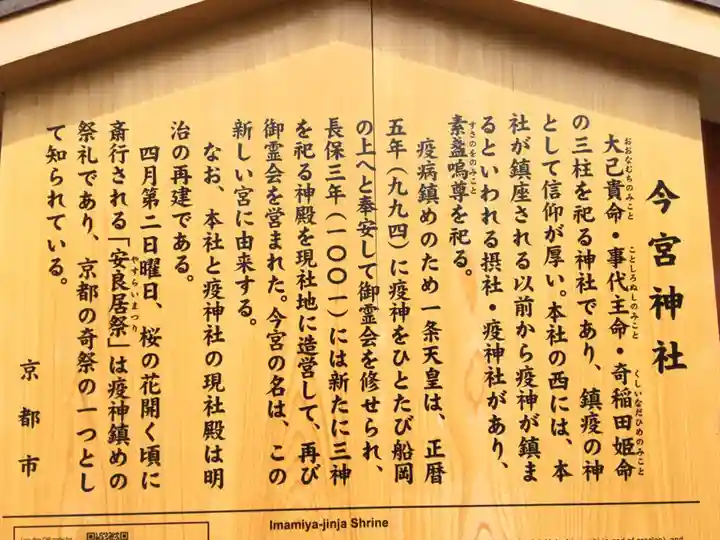 今宮神社
大己貴命・事代主命・奇稲田姫命
おおなむちのみこと ことしろぬしのみこと くしいなだひめのみこと
の三柱を祀る神社であり、鎮疫の神
として信仰が厚い。本社の西には、本
社が鎮座される以前から疫神が鎮ま
るといわれる摂社・疫神社があり、
素盞嗚尊を祀る。
すさのをのみこと
疫病鎮めのため一条天皇は、正暦
五年(九九四)に疫神をひとたび船岡
の上へと奉安して御霊会を修せられ、
長保三年(一〇〇一)には新たに三神
を祀る神殿を現社地に造営して、再び
御霊会を営まれた。今宮の名は、この
新しい宮に由来する。
なお、本社と疫神社の現社殿は明
治の再建である。
四月第二日曜日、桜の花開く頃に
斎行される「安良居祭」は疫神鎮めの
やすらいまつり
祭礼であり、京都の奇祭の一つとし
て知られている。
京都市
Imamiya-jinja Shrine